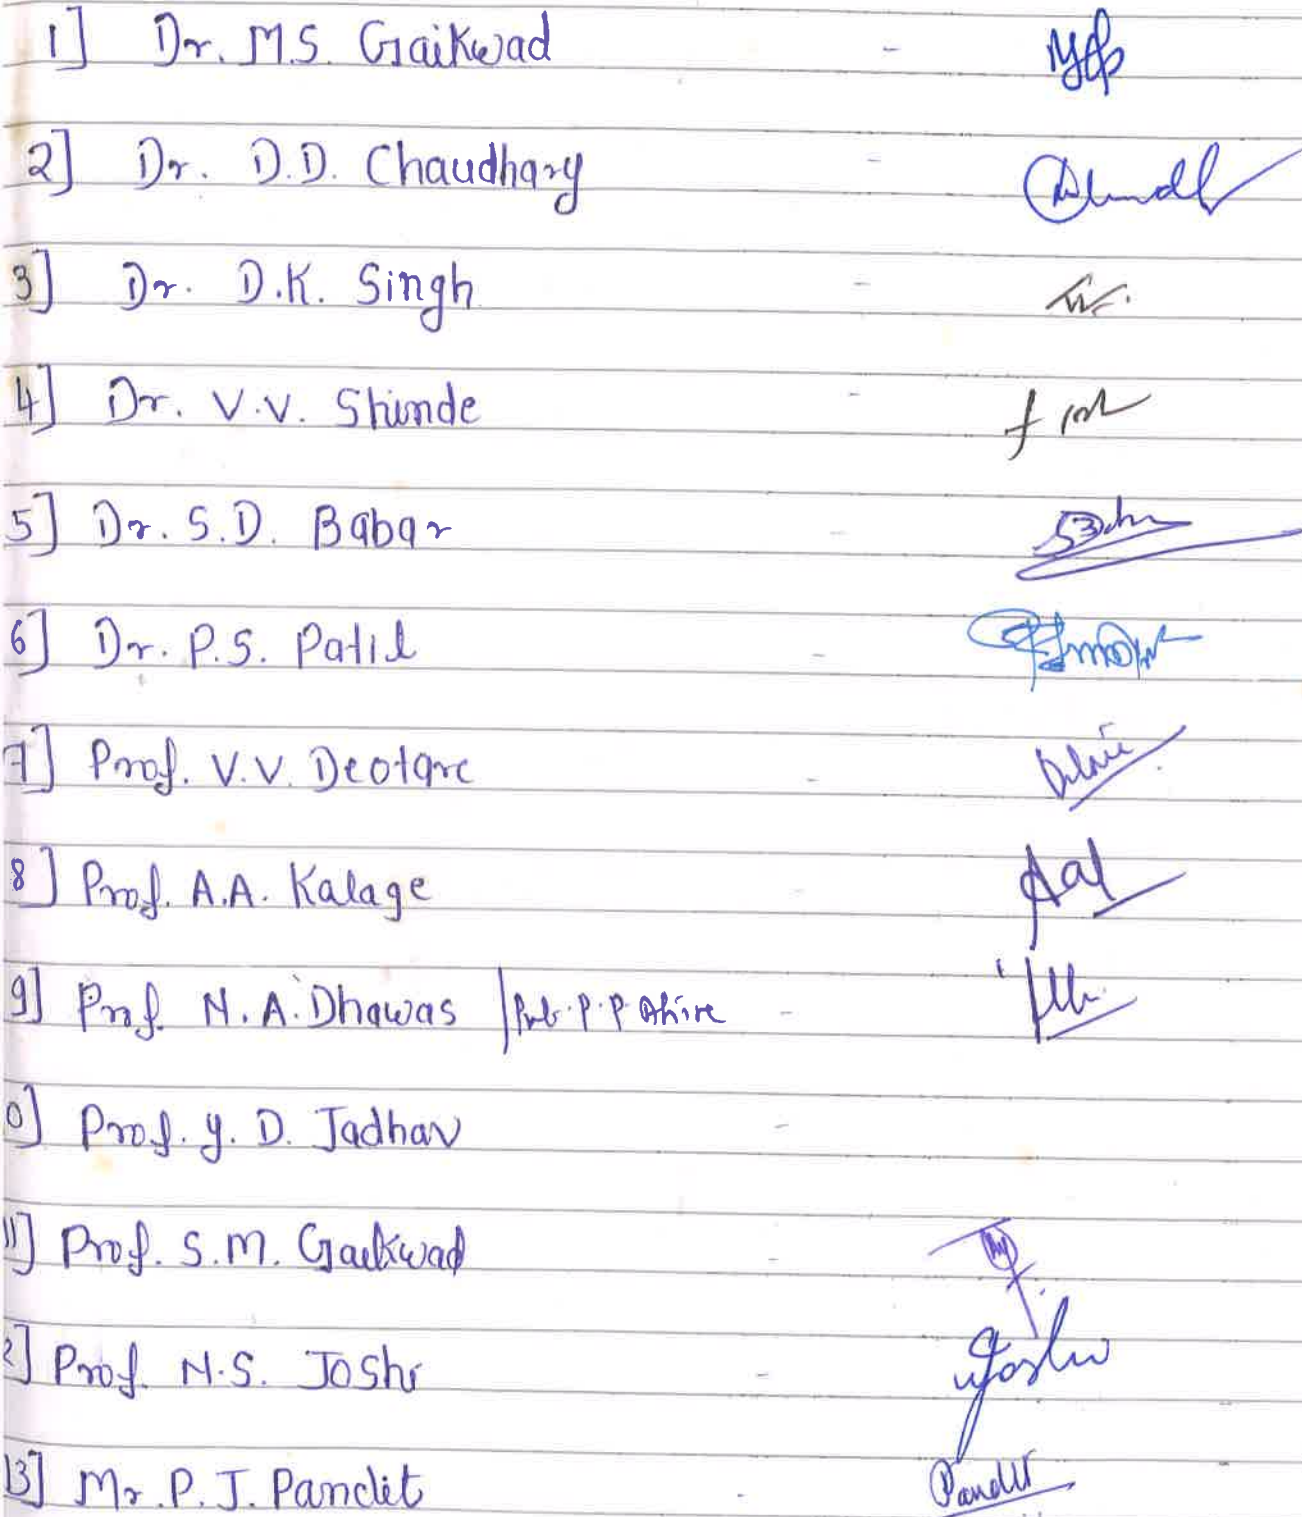 1] Dr. M.S. Gaikwad -
2] Dr. D.D. Chaudhary -
3] Dr. D.K. Singh -
4] Dr. V.V. Shinde -
5] Dr. S.D. Babar -
6] Dr. P.S. Patil -
7] Prof. V.V. Deotare -
8] Prof. A.A. Kalage -
9] Prof. N.A. Dhawas / Prof. P.P Ahire -
0] Prof. Y. D. Jadhav -
11] Prof. S.M. Gaikwad -
2] Prof. N.S. Joshi - Joshi
13] Mr. P.J. Pandit - Pandit